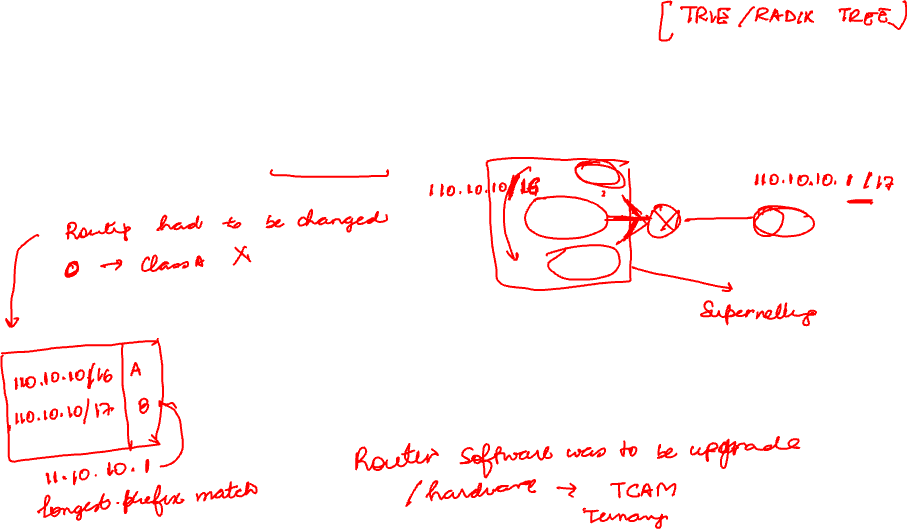 [TRIE/RADIX TREE]
110.10.10/16
110.10.10.1/17
Routing had to be changed
0 → Class A X
Supernetting
110.10.10/16 A
110.10.10/17 B
11.10.10.1
longest prefix match
Router software was to be upgrade
/hardware → TCAM
Ternary